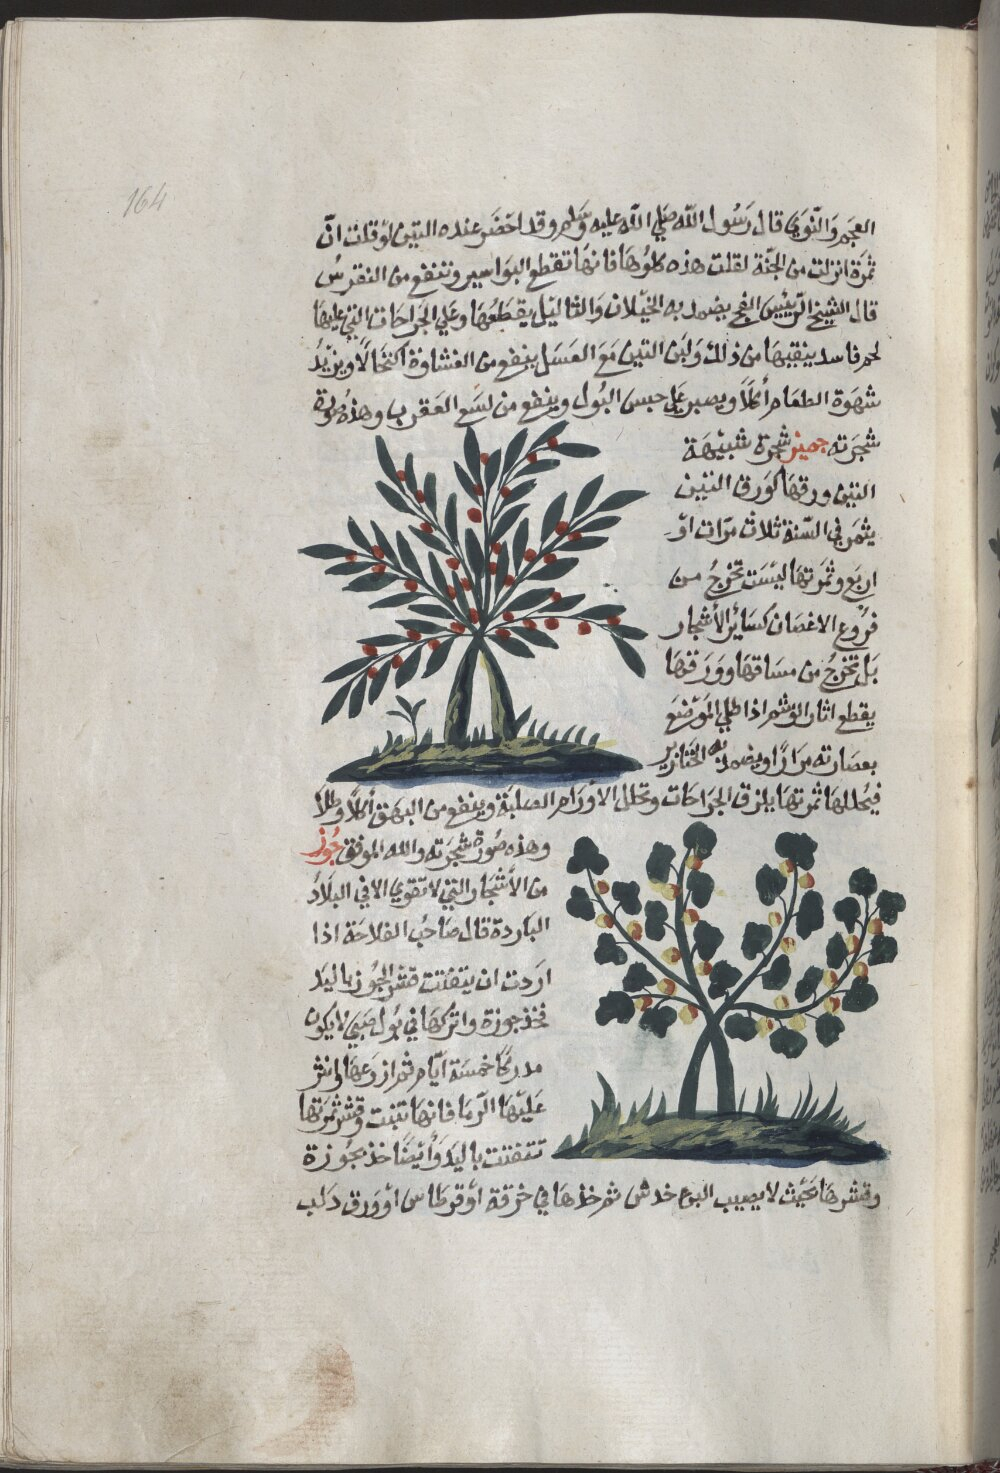 164
العجم والنوى قال رسول الله صلى الله عليه وسلم وقد احضر عنده التين لو قلت ان
ثمرة انزلت من الجنة لقلت هذه كلوها فانها تقطع البواسير وتنفع من النقرس
قال الشيخ الرئيس الفج يضمد به الخيلان والثاليل يقطعها وعلى الجراحات التي عليها
لحم فاسد ينقيها من ذلك ولبن التين مع العسل ينفع من الغشاوة اكتحالا ويزيد
شهوة الطعام أكلا ويصبر على حبس البول وينفع من لسع العقرب وهذه صورة
شجرته جميز شجرة شبيهة
التين ورقها كورق التين
يثمر في السنة ثلاث مرات او
اربع وثمرتها ليست تخرج من
فروع الاغصان كسائر الأشجار
بل تخرج من ساقها وورقها
يقطع اثار الوشم اذا طلي الموضع
بعصارته مرارا ويضمد به الخنازير
فيحللها ثمرتها يلزق الجراحات وتحلل الاورام الصلبة وينفع من البهق أكلا وطلاء
وهذه صورة شجرته والله الموفق جوز
من الأشجار التي لا تقوى الا في البلاد
الباردة قال صاحب الفلاحة اذا
اردت ان يتفتت قشر الجوز باليد
فخذ جوزة واتركها في بول صبي لا يكون
مدركا خمسة ايام ثم ازرعها وانثر
عليها الرماد فانها تنبت وقشر ثمرتها
تتفتت باليد وأيضا خذ بجوزة
وقشرها بحيث لا يصيب خدش ثم خذها في خرقة أو قرطاس او ورق دلب